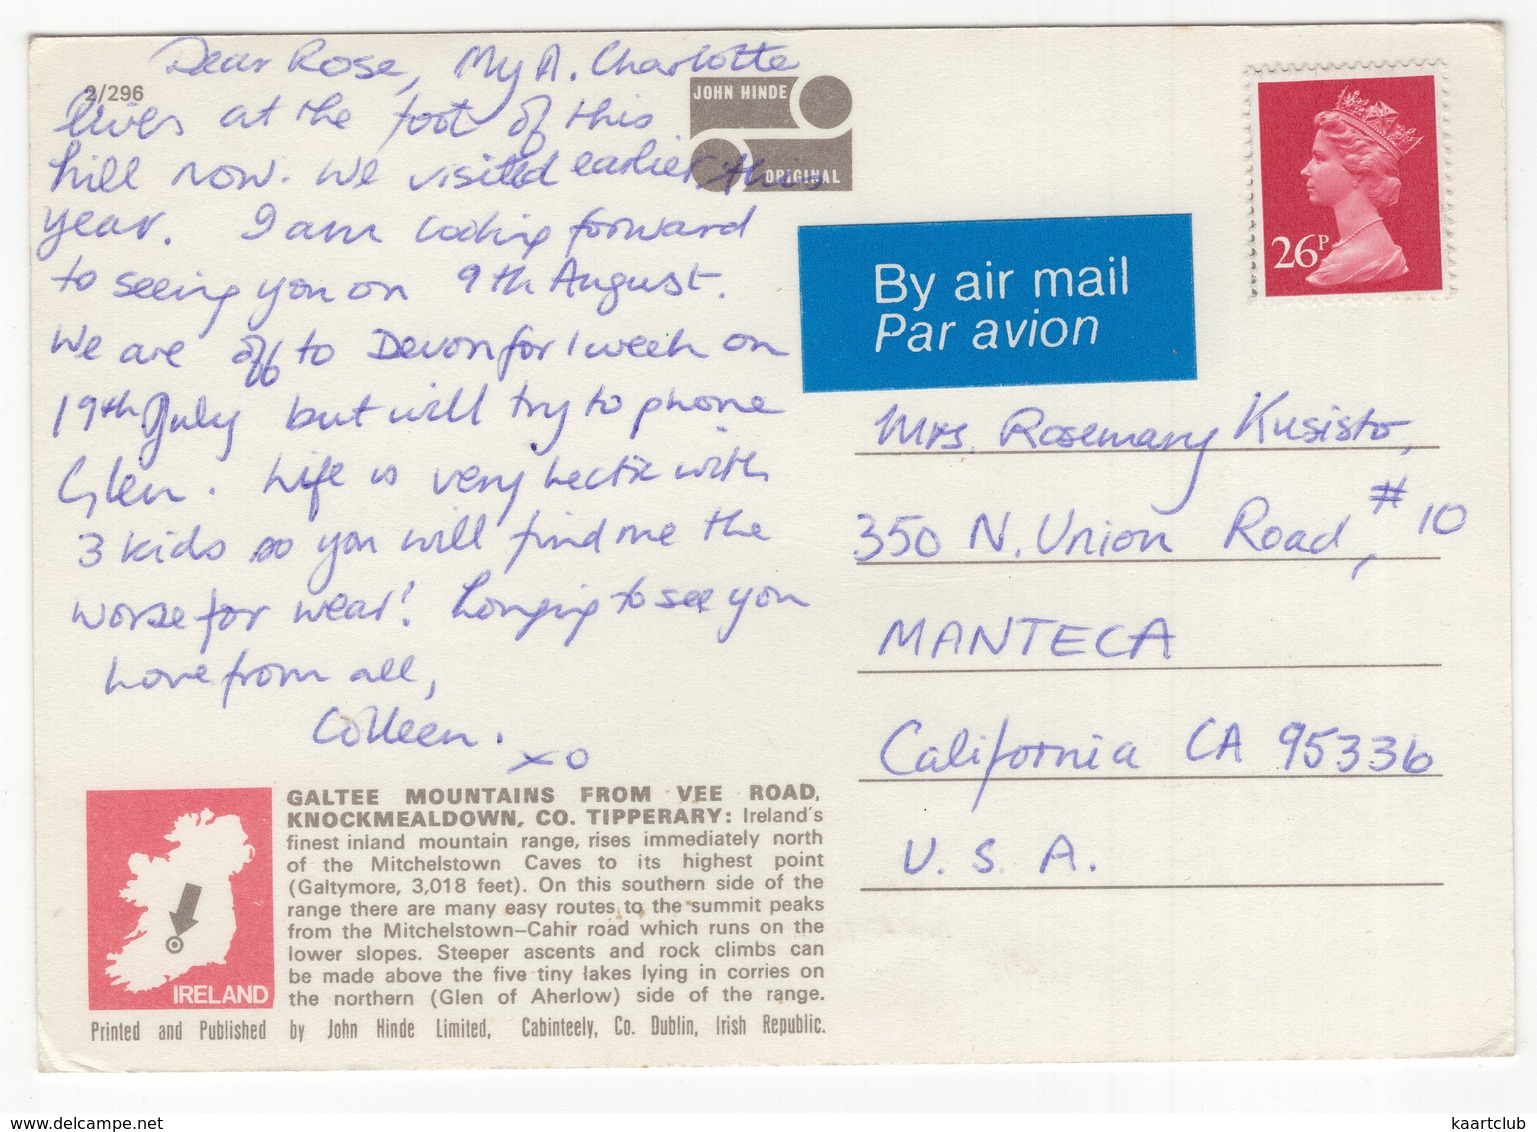 Dear Rose, My A. Charlotte
2/296
lives at the foot of this
hill now. We visited earlier this
year. I am looking forward
to seeing you on 9th August.
We are off to Devon for 1 week on
19th July but will try to phone
Glen. Life is very hectic with
3 kids so you will find me the
worse for wear! Longing to see you
Love from all,
Colleen.
xo
JOHN HINDE
ORIGINAL
26P
By air mail
Par avion
Mrs. Rosemary Kusisto,
350 N. Union Road, #10
MANTECA
California CA 95336
U.S.A.
GALTEE MOUNTAINS FROM VEE ROAD,
KNOCKMEALDOWN, CO. TIPPERARY: Ireland's
finest inland mountain range, rises immediately north
of the Mitchelstown Caves to its highest point
(Galtymore, 3,018 feet). On this southern side of the
range there are many easy routes to the summit peaks
from the Mitchelstown–Cahir road which runs on the
lower slopes. Steeper ascents and rock climbs can
be made above the five tiny lakes lying in corries on
the northern (Glen of Aherlow) side of the range.
IRELAND
Printed and Published by John Hinde Limited, Cabinteely, Co. Dublin, Irish Republic.
kaartclub